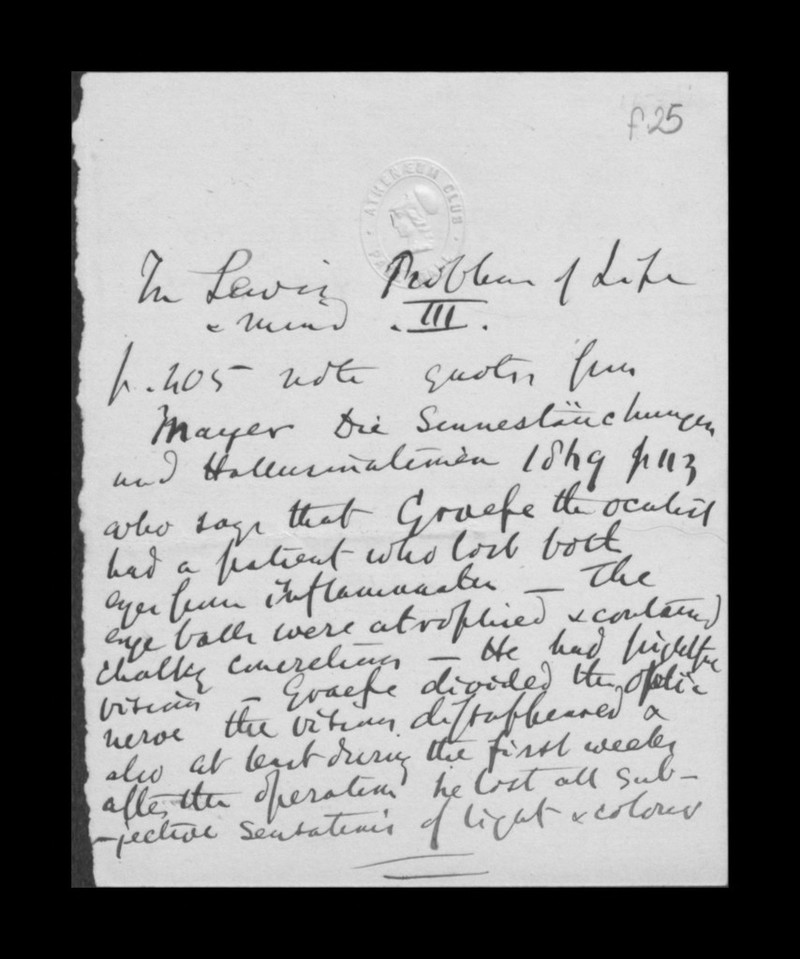 f.25
ATHENÆUM CLUB
PALL MALL
In Lewis Problem of Life
& mind . III .
p. 405 note quotes from
Mayer Die Sinnestäuchungen
und Hallusinatimen 1869 p 113
who says that Graefe the oculist
had a patient who lost both
eyes from inflammation — The
eye balls were atrophied & contained
chalky concretions — He had frightful
visions — Graefe divided the optic
nerve the visions disappeared &
also at least during the first weeks
after the operation he lost all sub-
-jective sensations of light & colour